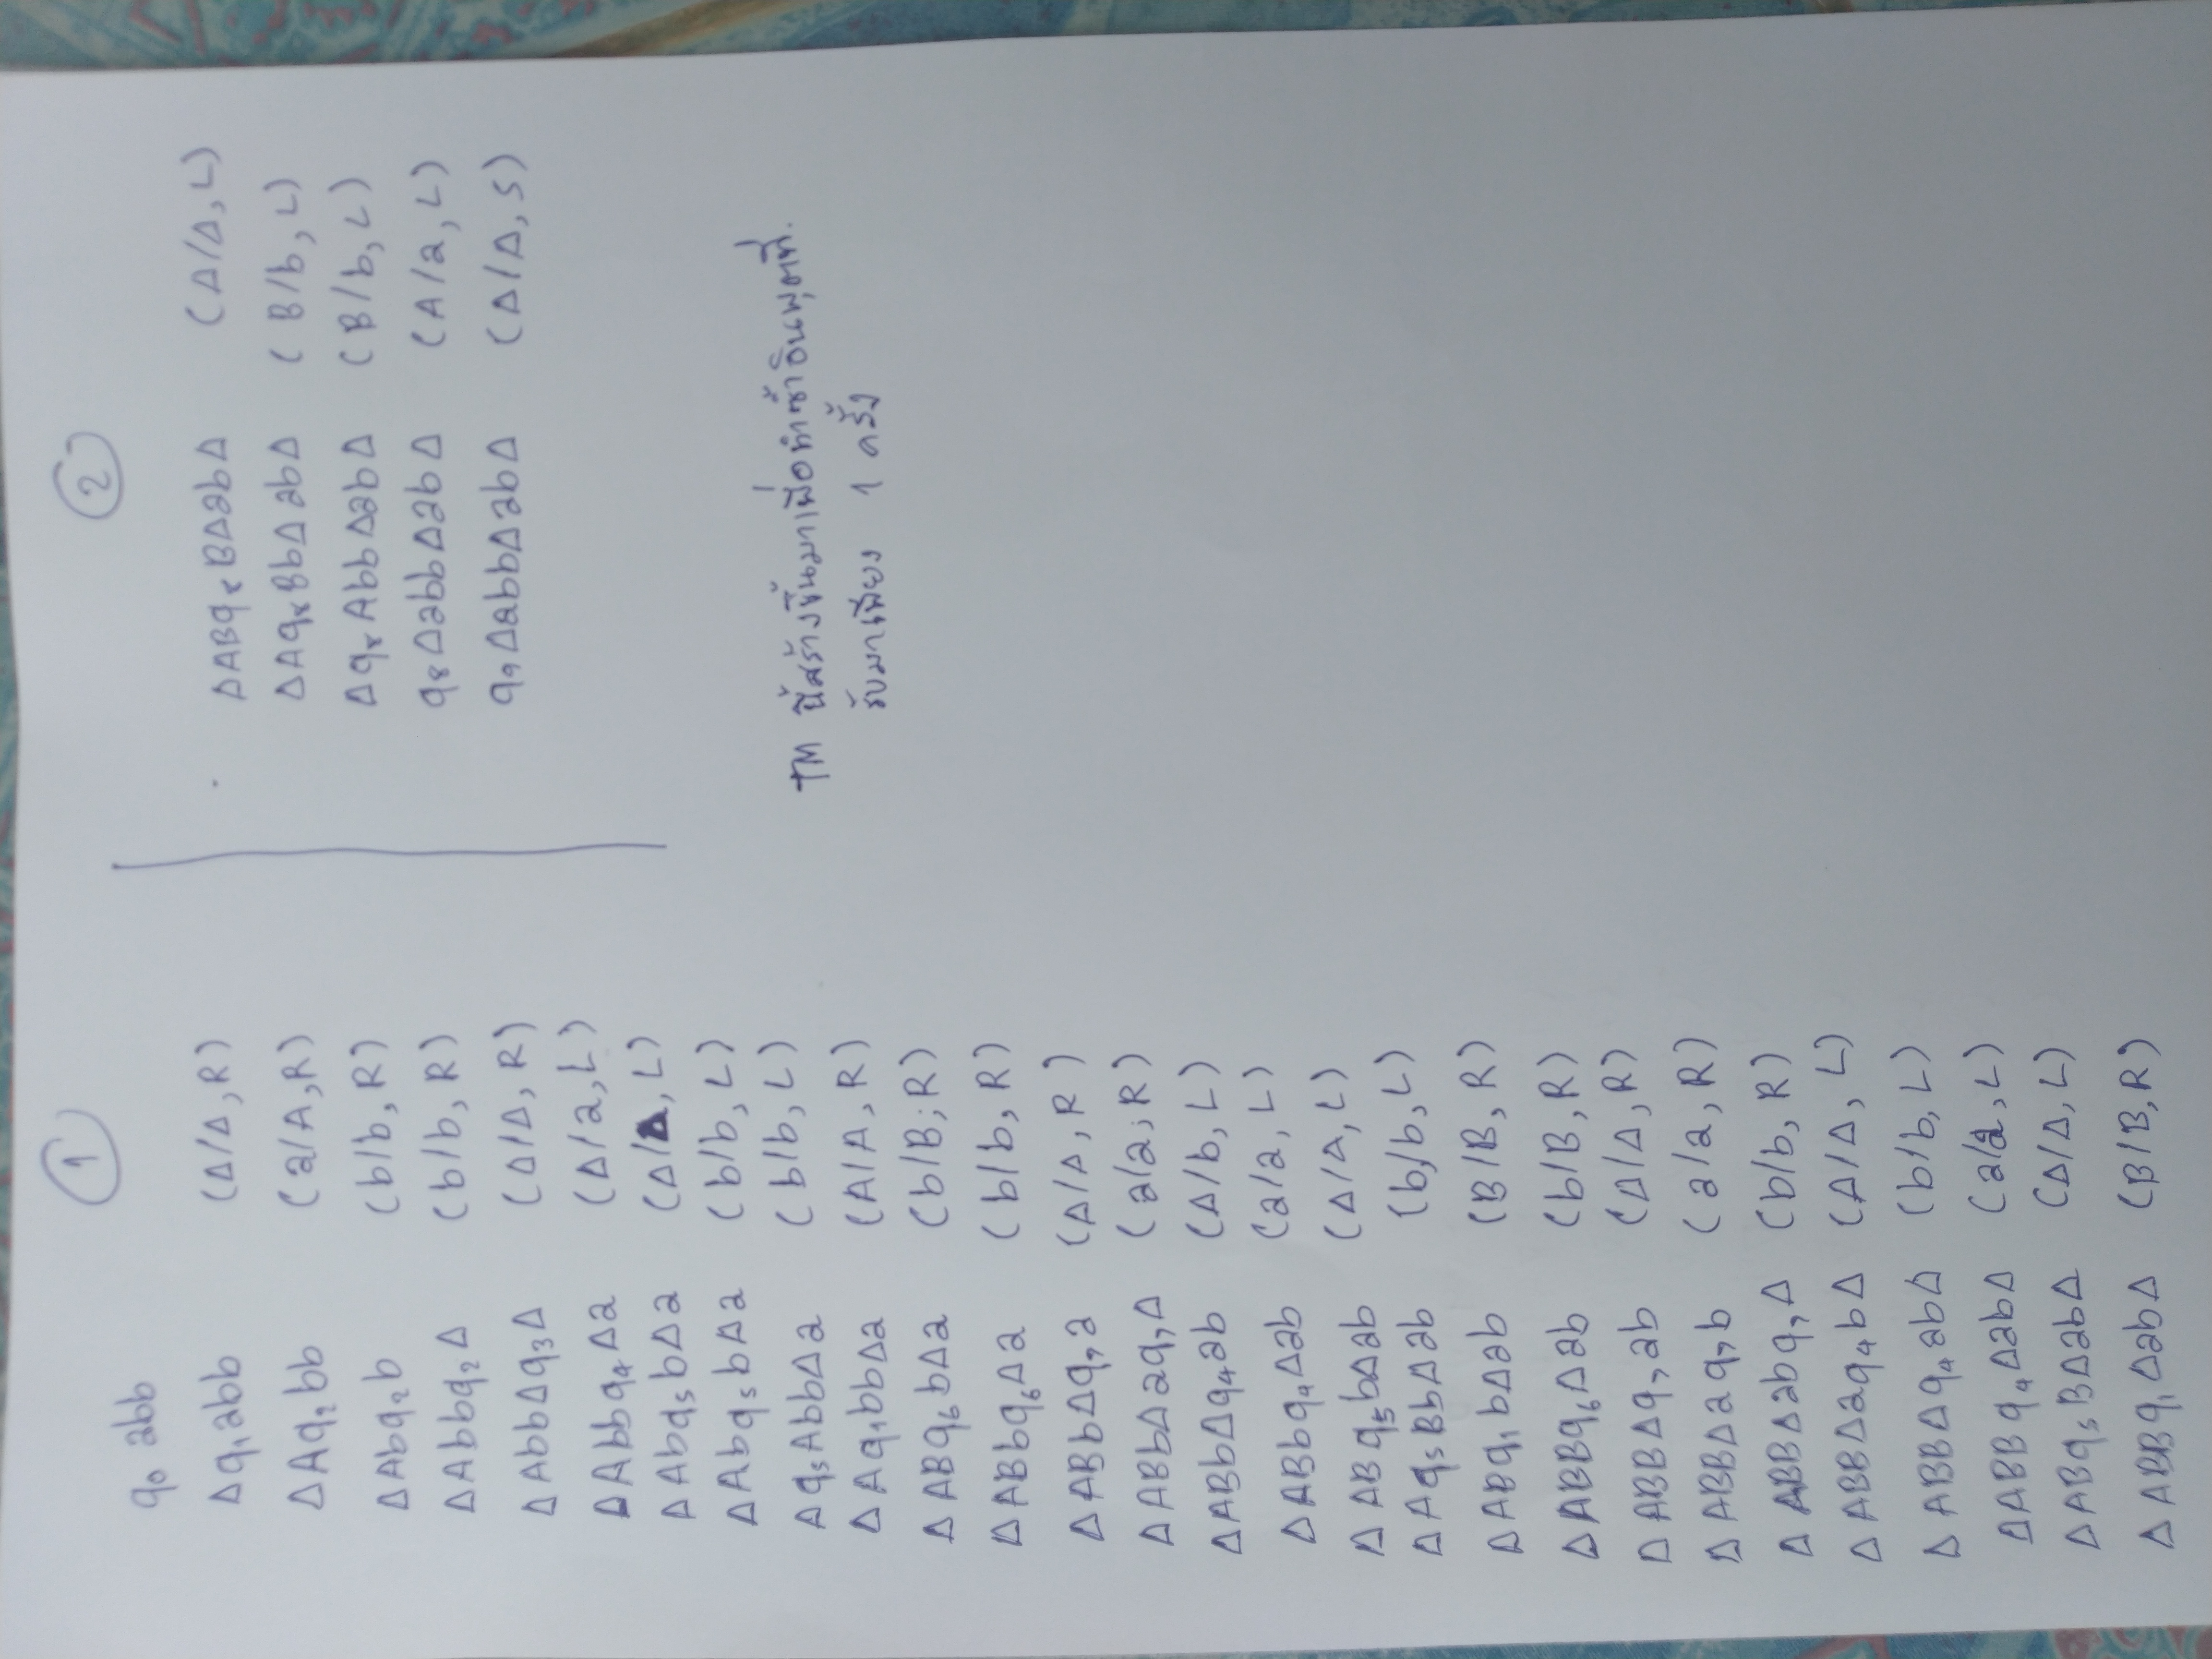 1
q₀ abb
Δq₁abb (Δ/Δ,R)
ΔAq₂bb (a/A,R)
ΔAbq₂b (b/b,R)
ΔAbbq₂Δ (b/b,R)
ΔAbbΔq₃Δ (Δ/Δ,R)
ΔAbbq₄Δa (Δ/a,L)
ΔAbq₅bΔa (Δ/Δ,L)
ΔAbq₅bΔa (b/b,L)
Δq₅AbbΔa (b/b,L)
ΔAq₁bbΔa (A/A,R)
ΔABq₆bΔa (b/B;R)
ΔABbq₆Δa (b/b,R)
ΔABbΔq₇a (Δ/Δ,R)
ΔABbΔaq₇Δ (a/a;R)
ΔABbΔq₄ab (Δ/b,L)
ΔABbq₄Δab (a/a,L)
ΔABq₅bΔab (Δ/Δ,L)
ΔAq₅BbΔab (b/b,L)
ΔABq₁bΔab (B/B,R)
ΔABBq₆Δab (b/B,R)
ΔABBΔq₇ab (Δ/Δ,R)
ΔABBΔaq₇b (a/a,R)
ΔABBΔabq₇Δ (b/b,R)
ΔABBΔaq₄bΔ (Δ/Δ,L)
ΔABBΔq₄abΔ (b/b,L)
ΔABBq₄ΔabΔ (a/a,L)
ΔABq₅BΔabΔ (Δ/Δ,L)
ΔABBq₁ΔabΔ (B/B,R)
2
ΔABq₈BΔabΔ (Δ/Δ,L)
ΔAq₈BbΔabΔ (B/b,L)
Δq₈AbbΔabΔ (B/b,L)
q₈ΔabbΔabΔ (A/a,L)
q₉ΔabbΔabΔ (Δ/Δ,S)
TM นี้สร้างขึ้นมาเพื่อทำซ้ำอินพุตที่
รับมาเพียง 1 ครั้ง